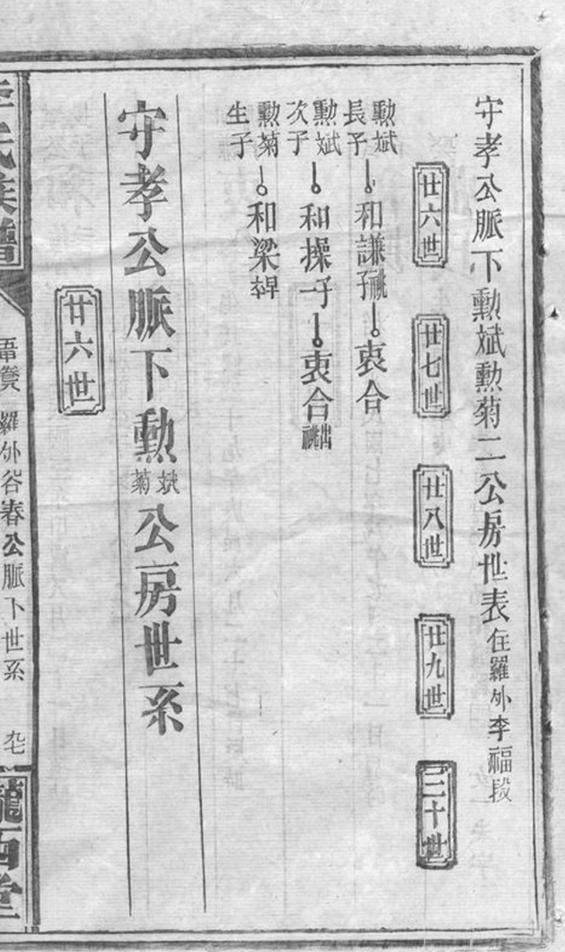 守孝公脈下勳斌勳菊二公房世表住羅外李福段
廿六世
廿七世
廿八世
廿九世
三十世
勳斌長子 和謙子祧 衷合
勳斌次子 和操子 衷合出祧
勳菊生子 和梁
守孝公脈下勳斌菊公房世系
廿六世
李氏族譜
羅外谷春公脈下世系
隴西堂